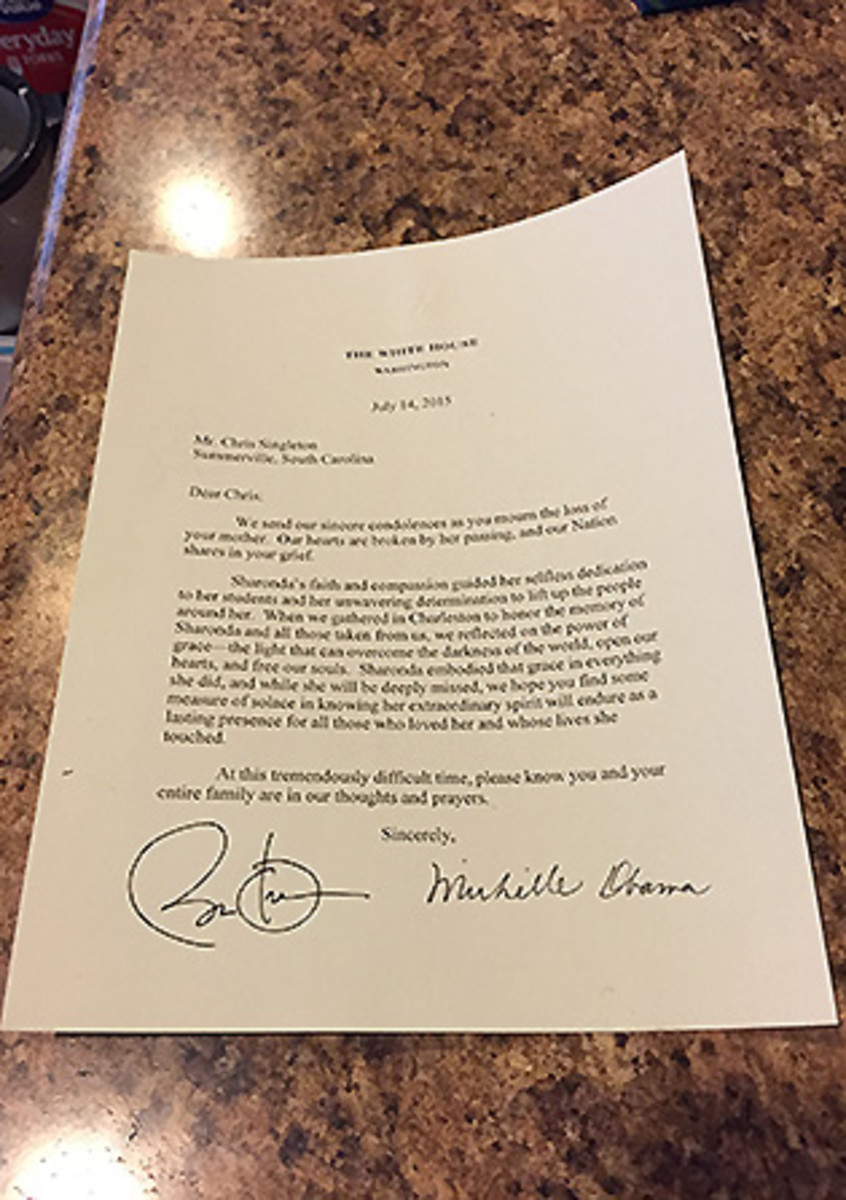 Value
eryday
THE WHITE HOUSE
WASHINGTON
July 14, 2015
Mr. Chris Singleton
Summerville, South Carolina
Dear Chris:
We send our sincere condolences as you mourn the loss of
your mother. Our hearts are broken by her passing, and our Nation
shares in your grief.
Sharonda's faith and compassion guided her selfless dedication
to her students and her unwavering determination to lift up the people
around her. When we gathered in Charleston to honor the memory of
Sharonda and all those taken from us, we reflected on the power of
grace—the light that can overcome the darkness of the world, open our
hearts, and free our souls. Sharonda embodied that grace in everything
she did, and while she will be deeply missed, we hope you find some
measure of solace in knowing her extraordinary spirit will endure as a
lasting presence for all those who loved her and whose lives she
touched.
At this tremendously difficult time, please know you and your
entire family are in our thoughts and prayers.
Sincerely,
Michelle Obama